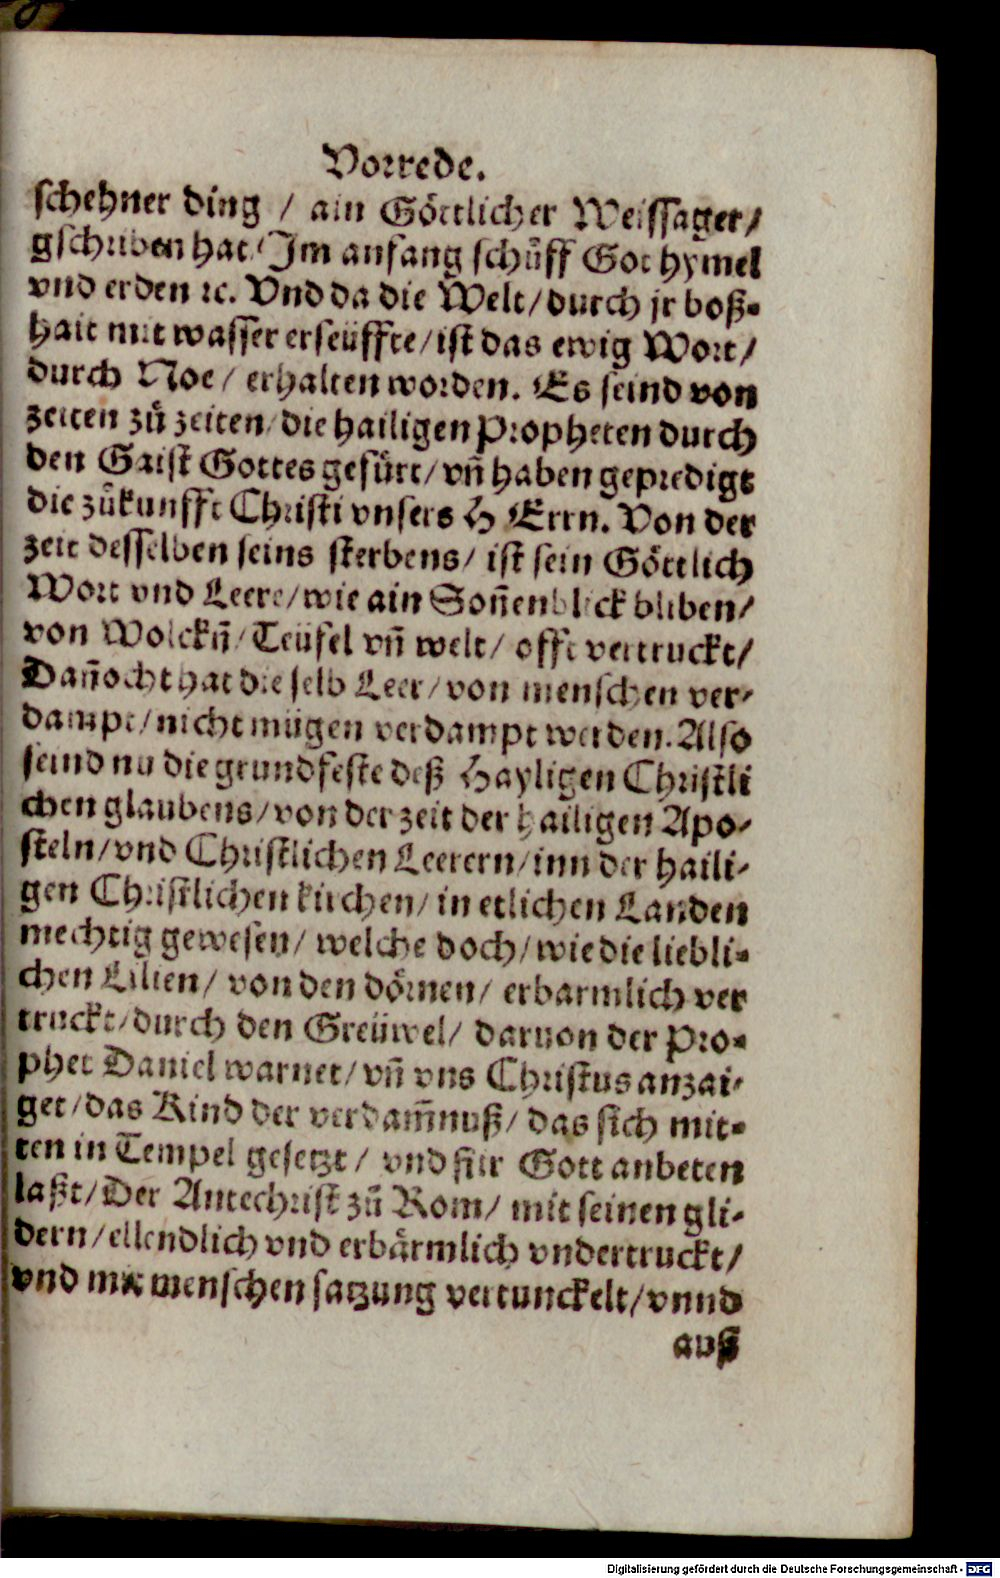 Vorrede.
schehner ding / ain Göttlicher Weissager/
gschriben hat/ Im anfang schůff Got hymel
vnd erden ꝛc. Vnd da die Welt/ durch jr boß⸗
hait mit wasser erseüffte/ ist das ewig Wort/
durch Noe/ erhalten worden. Es seind von
zeiten zů zeiten/ die hailigen Propheten durch
den Gaist Gottes gefürt/ vñ haben gepredigt
die zůkunfft Christi vnsers HErrn. Von der
zeit desselben seins sterbens/ ist sein Göttlich
Wort vnd Leere/ wie ain Soñenblick bliben/
von Wolckñ/ Teüfel vñ welt/ offt vertruckt/
Dañocht hat die selb Leer/ von menschen ver⸗
dampt/ nicht mügen verdampt werden. Also
seind nu die grundfeste deß Hayligen Christli
chen glaubens/ von der zeit der hailigen Apo⸗
steln/ vnd Christlichen Leerern/ inn der haili⸗
gen Christlichen kirchen/ in etlichen Landen
mechtig gewesen/ welche doch/ wie die liebli⸗
chen Lilien/ von den dörnen/ erbarmlich ver
truckt/ durch den Greüwel/ daruon der Pro⸗
phet Daniel warnet/ vñ vns Christus anzai⸗
get/ das Kind der verdam̃nuß/ das sich mit⸗
ten in Tempel gesetzt / vnd für Gott anbeten
laßt/ Der Antechrist zů Rom/ mit seinen gli⸗
dern/ ellendlich vnd erbärmlich vndertruckt/
vnd mit menschen satzung vertunckelt/ vnnd
auß
Digitalisierung gefördert durch die Deutsche Forschungsgemeinschaft - DFG